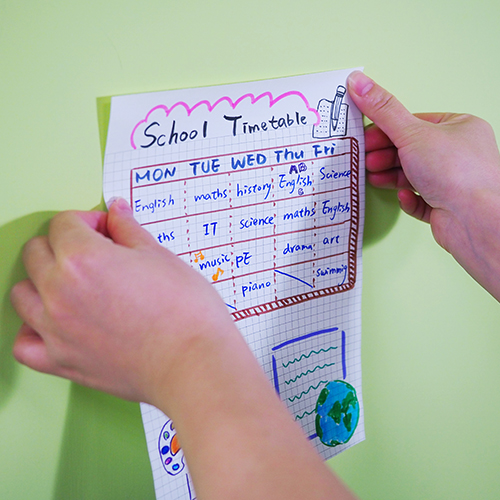 School Timetable
MON TUE WED Thu Fri
English maths history English Science
ths IT science maths English
music PE drama art
piano swimming